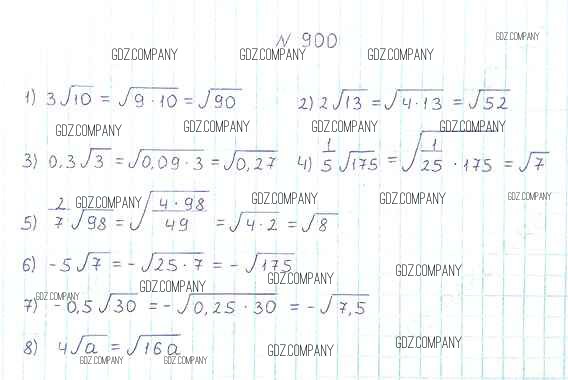 N 900
GDZ.COMPANY GDZ.COMPANY GDZ.COMPANY GDZ.COMPANY
1) 3√10 = √9·10 = √90 2) 2√13 = √4·13 = √52
GDZ.COMPANY GDZ.COMPANY GDZ.COMPANY GDZ.COMPANY
3) 0.3√3 = √0,09·3 = √0,27 4) 1/5 √175 = √1/25 · 175 = √7
GDZ.COMPANY GDZ.COMPANY GDZ.COMPANY GDZ.COMPANY
5) 2/7 √98 = √4·98/49 = √4·2 = √8
6) -5√7 = -√25·7 = -√175
GDZ.COMPANY GDZ.COMPANY GDZ.COMPANY GDZ.COMPANY
7) -0,5√30 = -√0,25·30 = -√7,5
8) 4√a = √16a
GDZ.COMPANY GDZ.COMPANY GDZ.COMPANY GDZ.COMPANY